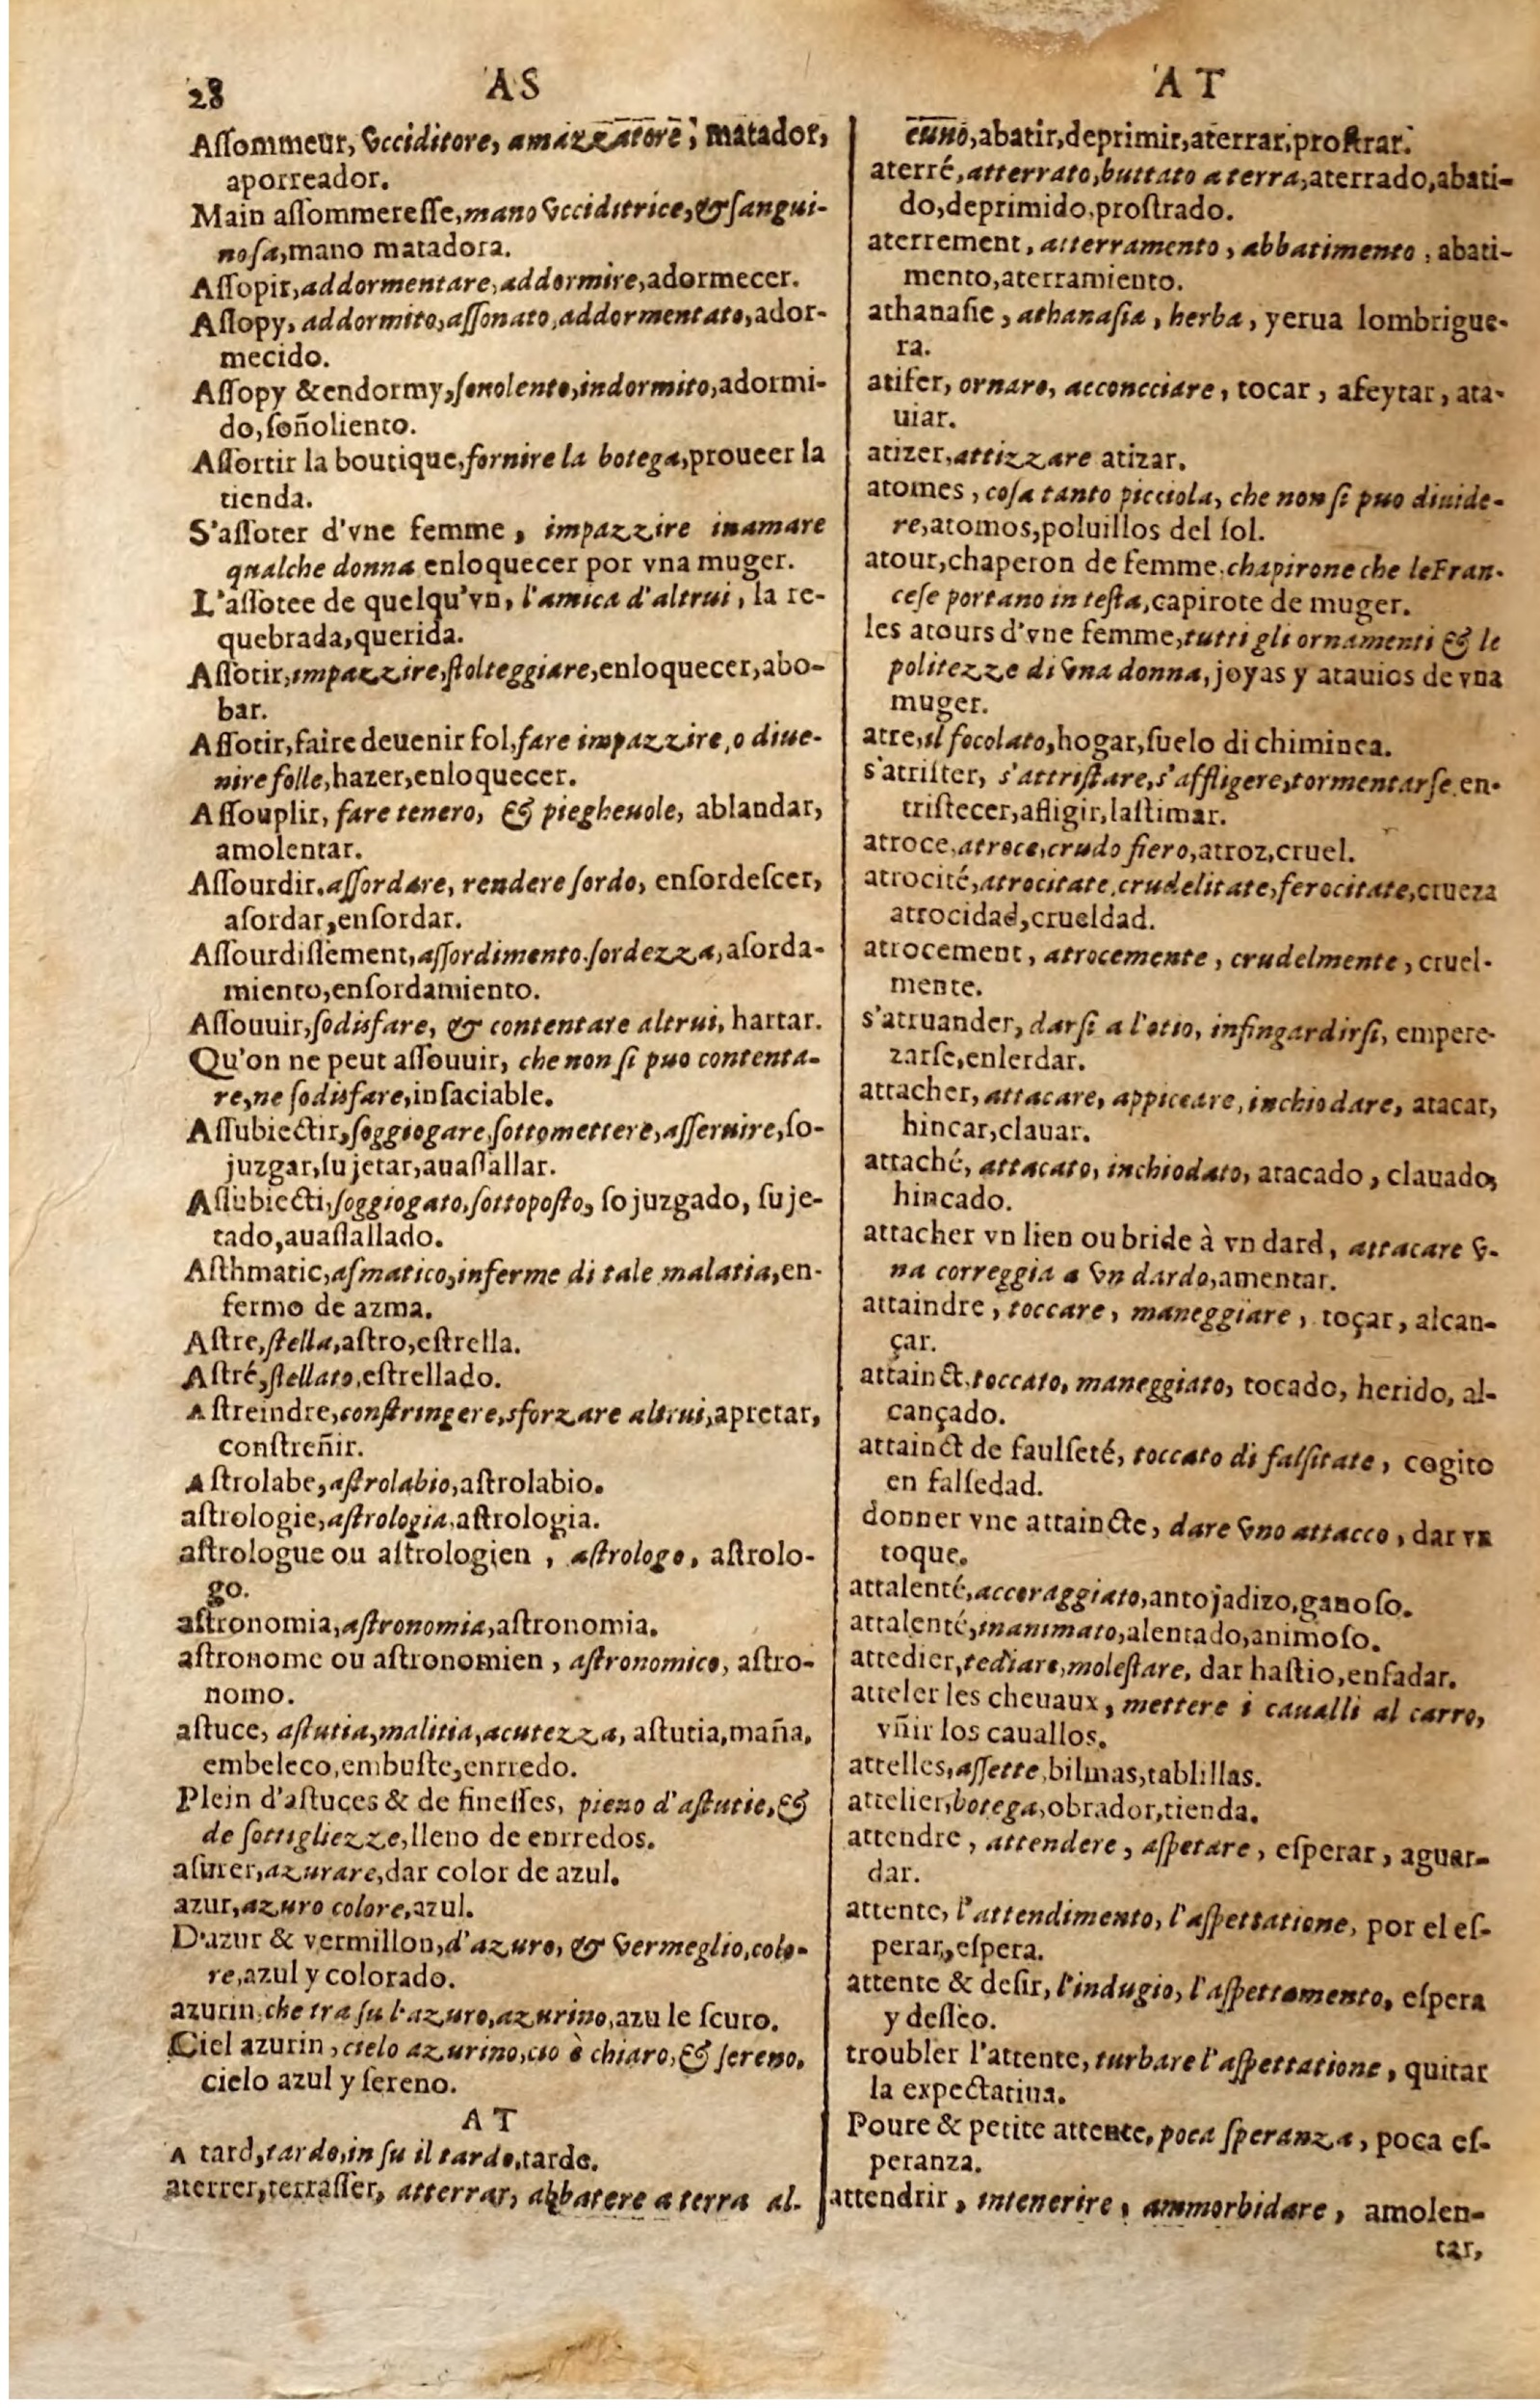 28
AS
Aſſommeur, vcciditore, amazzatore, matador,
aporreador.
Main aſſommereſſe, mano vcciditrice, & ſangui-
noſa, mano matadora.
Aſſopir, addormentare, addormire, adormecer.
Aſſopy, addormito, aſſonato, addormentato, ador-
mecido.
Aſſopy & endormy, ſonolento, indormito, adormi-
do, ſoñoliento.
Aſſortir la boutique, fornire la botega, proueer la
tienda.
S'aſſoter d'vne femme, impazzire inamare
qualche donna enloquecer por vna muger.
L'aſſotee de quelqu'vn, l'amica d'altrui, la re-
quebrada, querida.
Aſſotir, impazzire, ſtolteggiare, enloquecer, abo-
bar.
Aſſotir, faire deuenir fol, fare impazzire, o diue-
nire folle, hazer, enloquecer.
Aſſouplir, fare tenero, & piegheuole, ablandar,
amolentar.
Aſſourdir, aſſordare, rendere ſordo, enſordeſcer,
aſordar, enſordar.
Aſſourdiſſement, aſſordimento, ſordezza, aſorda-
miento, enſordamiento.
Aſſouuir, ſodisfare, & contentare altrui, hartar.
Qu'on ne peut aſſouuir, che non ſi puo contenta-
re, ne ſodisfare, inſaciable.
Aſſubiectir, ſoggiogare, ſottomettere, aſſeruire, ſo-
juzgar, ſujetar, auaſſallar.
Aſſubiecti, ſoggiogato, ſottopoſto, ſojuzgado, ſuje-
tado, auaſſallado.
Aſthmatic, aſmatico, inferme di tale malatia, en-
fermo de azma.
Aſtre, ſtella, aſtro, eſtrella.
Aſtré, ſtellato, eſtrellado.
Aſtreindre, conſtringere, sforzare altrui, apretar,
conſtreñir.
Aſtrolabe, aſtrolabio, aſtrolabio.
aſtrologie, aſtrologia, aſtrologia.
aſtrologue ou aſtrologien, aſtrologo, aſtrolo-
go.
aſtronomia, aſtronomia, aſtronomia.
aſtronome ou aſtronomien, aſtronomico, aſtro-
nomo.
aſtuce, aſtutia, malitia, acutezza, aſtutia, maña,
embeleco, embuſte, enrredo.
Plein d'aſtuces & de fineſſes, pieno d'aſtutie, &
de ſottigliezze, lleno de enrredos.
aſurer, azurare, dar color de azul.
azur, azuro colore, azul.
D'azur & vermillon, d'azuro, & vermeglio, colo-
re, azul y colorado.
azurin, che tra ſu l'azuro, azurino, azu le ſcuro.
Ciel azurin, cielo azurino, cio è chiaro, & ſereno,
cielo azul y ſereno.
AT
A tard, tardo, in ſu il tardo, tarde.
aterrer, terraſſer, atterrar, abbatere a terra al-
AT
cuno, abatir, deprimir, aterrar, proſtrar.
aterré, atterrato, buttato a terra, aterrado, abati-
do, deprimido, proſtrado.
aterrement, atterramento, abbatimento, abati-
mento, aterramiento.
athanaſie, athanaſia, herba, yerua lombrigue-
ra.
atifer, ornare, acconcciare, tocar, afeytar, ata-
uiar.
atizer, attizzare atizar.
atomes, coſa tanto picciola, che non ſi puo diuide-
re, atomos, poluillos del ſol.
atour, chaperon de femme, chapirone che le Fran-
ceſe portano in teſta, capirote de muger.
les atours d'vne femme, tutti gli ornamenti & le
politezze di vna donna, joyas y atauios de vna
muger.
atre, il focolato, hogar, ſuelo di chiminea.
s'atriſter, s'attriſtare, s'affligere, tormentarſe, en-
triſtecer, afligir, laſtimar.
atroce, atroce, crudo fiero, atroz, cruel.
atrocité, atrocitate, crudelitate, ferocitate, crueza
atrocidad, crueldad.
atrocement, atrocemente, crudelmente, cruel-
mente.
s'atruander, darſi a l'otio, infingardirſi, empere-
zarſe, enlerdar.
attacher, attacare, appiccare, inchiodare, atacar,
hincar, clauar.
attaché, attacato, inchiodato, atacado, clauado,
hincado.
attacher vn lien ou bride à vn dard, attacare v-
na correggia a vn dardo, amentar.
attaindre, toccare, maneggiare, toçar, alcan-
çar.
attainct, toccato, maneggiato, tocado, herido, al-
cançado.
attainct de faulſeté, toccato di falſitate, cogito
en falſedad.
donner vne attaincte, dare vno attacco, dar vn
toque.
attalenté, accoraggiato, antojadizo, ganoſo.
attalenté, inanimato, alentado, animoſo.
attedier, tediare, moleſtare, dar haſtio, enfadar.
atteler les cheuaux, mettere i caualli al carro,
vñir los cauallos.
attelles, aſſette, bilmas, tablillas.
attelier, botega, obrador, tienda.
attendre, attendere, aſpetare, eſperar, aguar-
dar.
attente, l'attendimento, l'aſpettatione, por el eſ-
perar, eſpera.
attente & deſir, l'indugio, l'aſpettamento, eſpera
y deſſeo.
troubler l'attente, turbare l'aſpettatione, quitar
la expectatiua.
Poure & petite attente, poca ſperanza, poca eſ-
peranza.
attendrir, intenerire, ammorbidare, amolen-
tar,